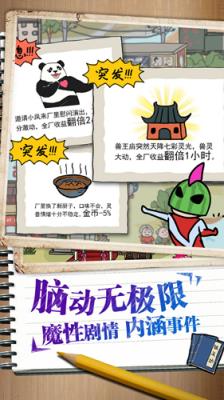 息!
邀请小凤来厂里慰问演出,
分激动,全厂收益翻倍2
突发!!!
兽王庙突然天降七彩灵光,兽灵
大动,全厂收益翻倍
突发!!!
厂里换了新厨子,口味不合,灵
兽情绪十分不稳定,金币-5%
脑动无极限
魔性剧情 内涵事件